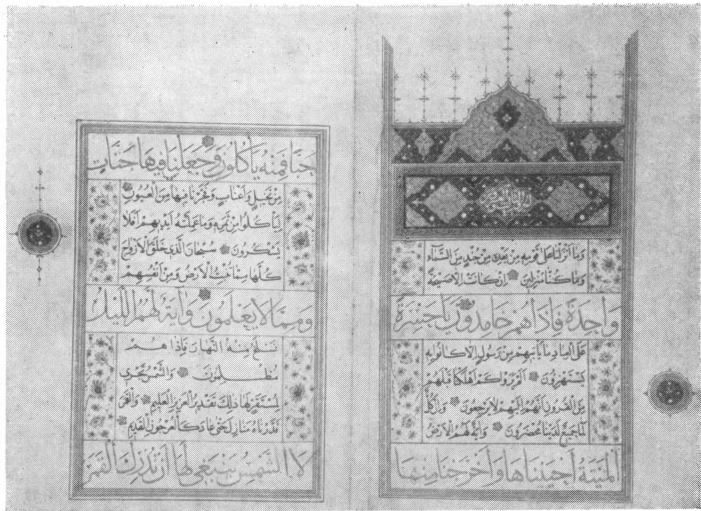 وَمَا اَنْزَلْنَا عَلٰى قَوْمِهِ مِنْ بَعْدِهِ مِنْ جُنْدٍ مِنَ السَّمَآءِ
وَمَا كُنَّا مُنْزِلِينَ اِنْ كَانَتْ اِلَّا صَيْحَةً
وَاحِدَةً فَاِذَا هُمْ خَامِدُونَ يَا حَسْرَةً
عَلَى الْعِبَادِ مَا يَاْتِيهِمْ مِنْ رَسُولٍ اِلَّا كَانُوا بِهِ
يَسْتَهْزِؤُنَ اَلَمْ يَرَوْا كَمْ اَهْلَكْنَا قَبْلَهُمْ
مِنَ الْقُرُونِ اَنَّهُمْ اِلَيْهِمْ لَا يَرْجِعُونَ وَاِنْ كُلٌّ
لَمَّا جَمِيعٌ لَدَيْنَا مُحْضَرُونَ وَاٰيَةٌ لَهُمُ الْاَرْضُ
الْمَيْتَةُ اَحْيَيْنَاهَا وَاَخْرَجْنَا مِنْهَا
حَبًّا فَمِنْهُ يَاْكُلُونَ وَجَعَلْنَا فِيهَا جَنَّاتٍ
مِنْ نَخِيلٍ وَاَعْنَابٍ وَفَجَّرْنَا فِيهَا مِنَ الْعُيُونِ
لِيَاْكُلُوا مِنْ ثَمَرِهِ وَمَا عَمِلَتْهُ اَيْدِيهِمْ اَفَلَا
يَشْكُرُونَ سُبْحَانَ الَّذِي خَلَقَ الْاَزْوَاجَ
كُلَّهَا مِمَّا تُنْبِتُ الْاَرْضُ وَمِنْ اَنْفُسِهِمْ
وَمِمَّا لَا يَعْلَمُونَ وَاٰيَةٌ لَهُمُ اللَّيْلُ
نَسْلَخُ مِنْهُ النَّهَارَ فَاِذَا هُمْ
مُظْلِمُونَ وَالشَّمْسُ تَجْرِي
لِمُسْتَقَرٍّ لَهَا ذٰلِكَ تَقْدِيرُ الْعَزِيزِ الْعَلِيمِ وَالْقَمَرَ
قَدَّرْنَاهُ مَنَازِلَ حَتَّى عَادَ كَالْعُرْجُونِ الْقَدِيمِ
لَا الشَّمْسُ يَنْبَغِي لَهَا اَنْ تُدْرِكَ الْقَمَرَ